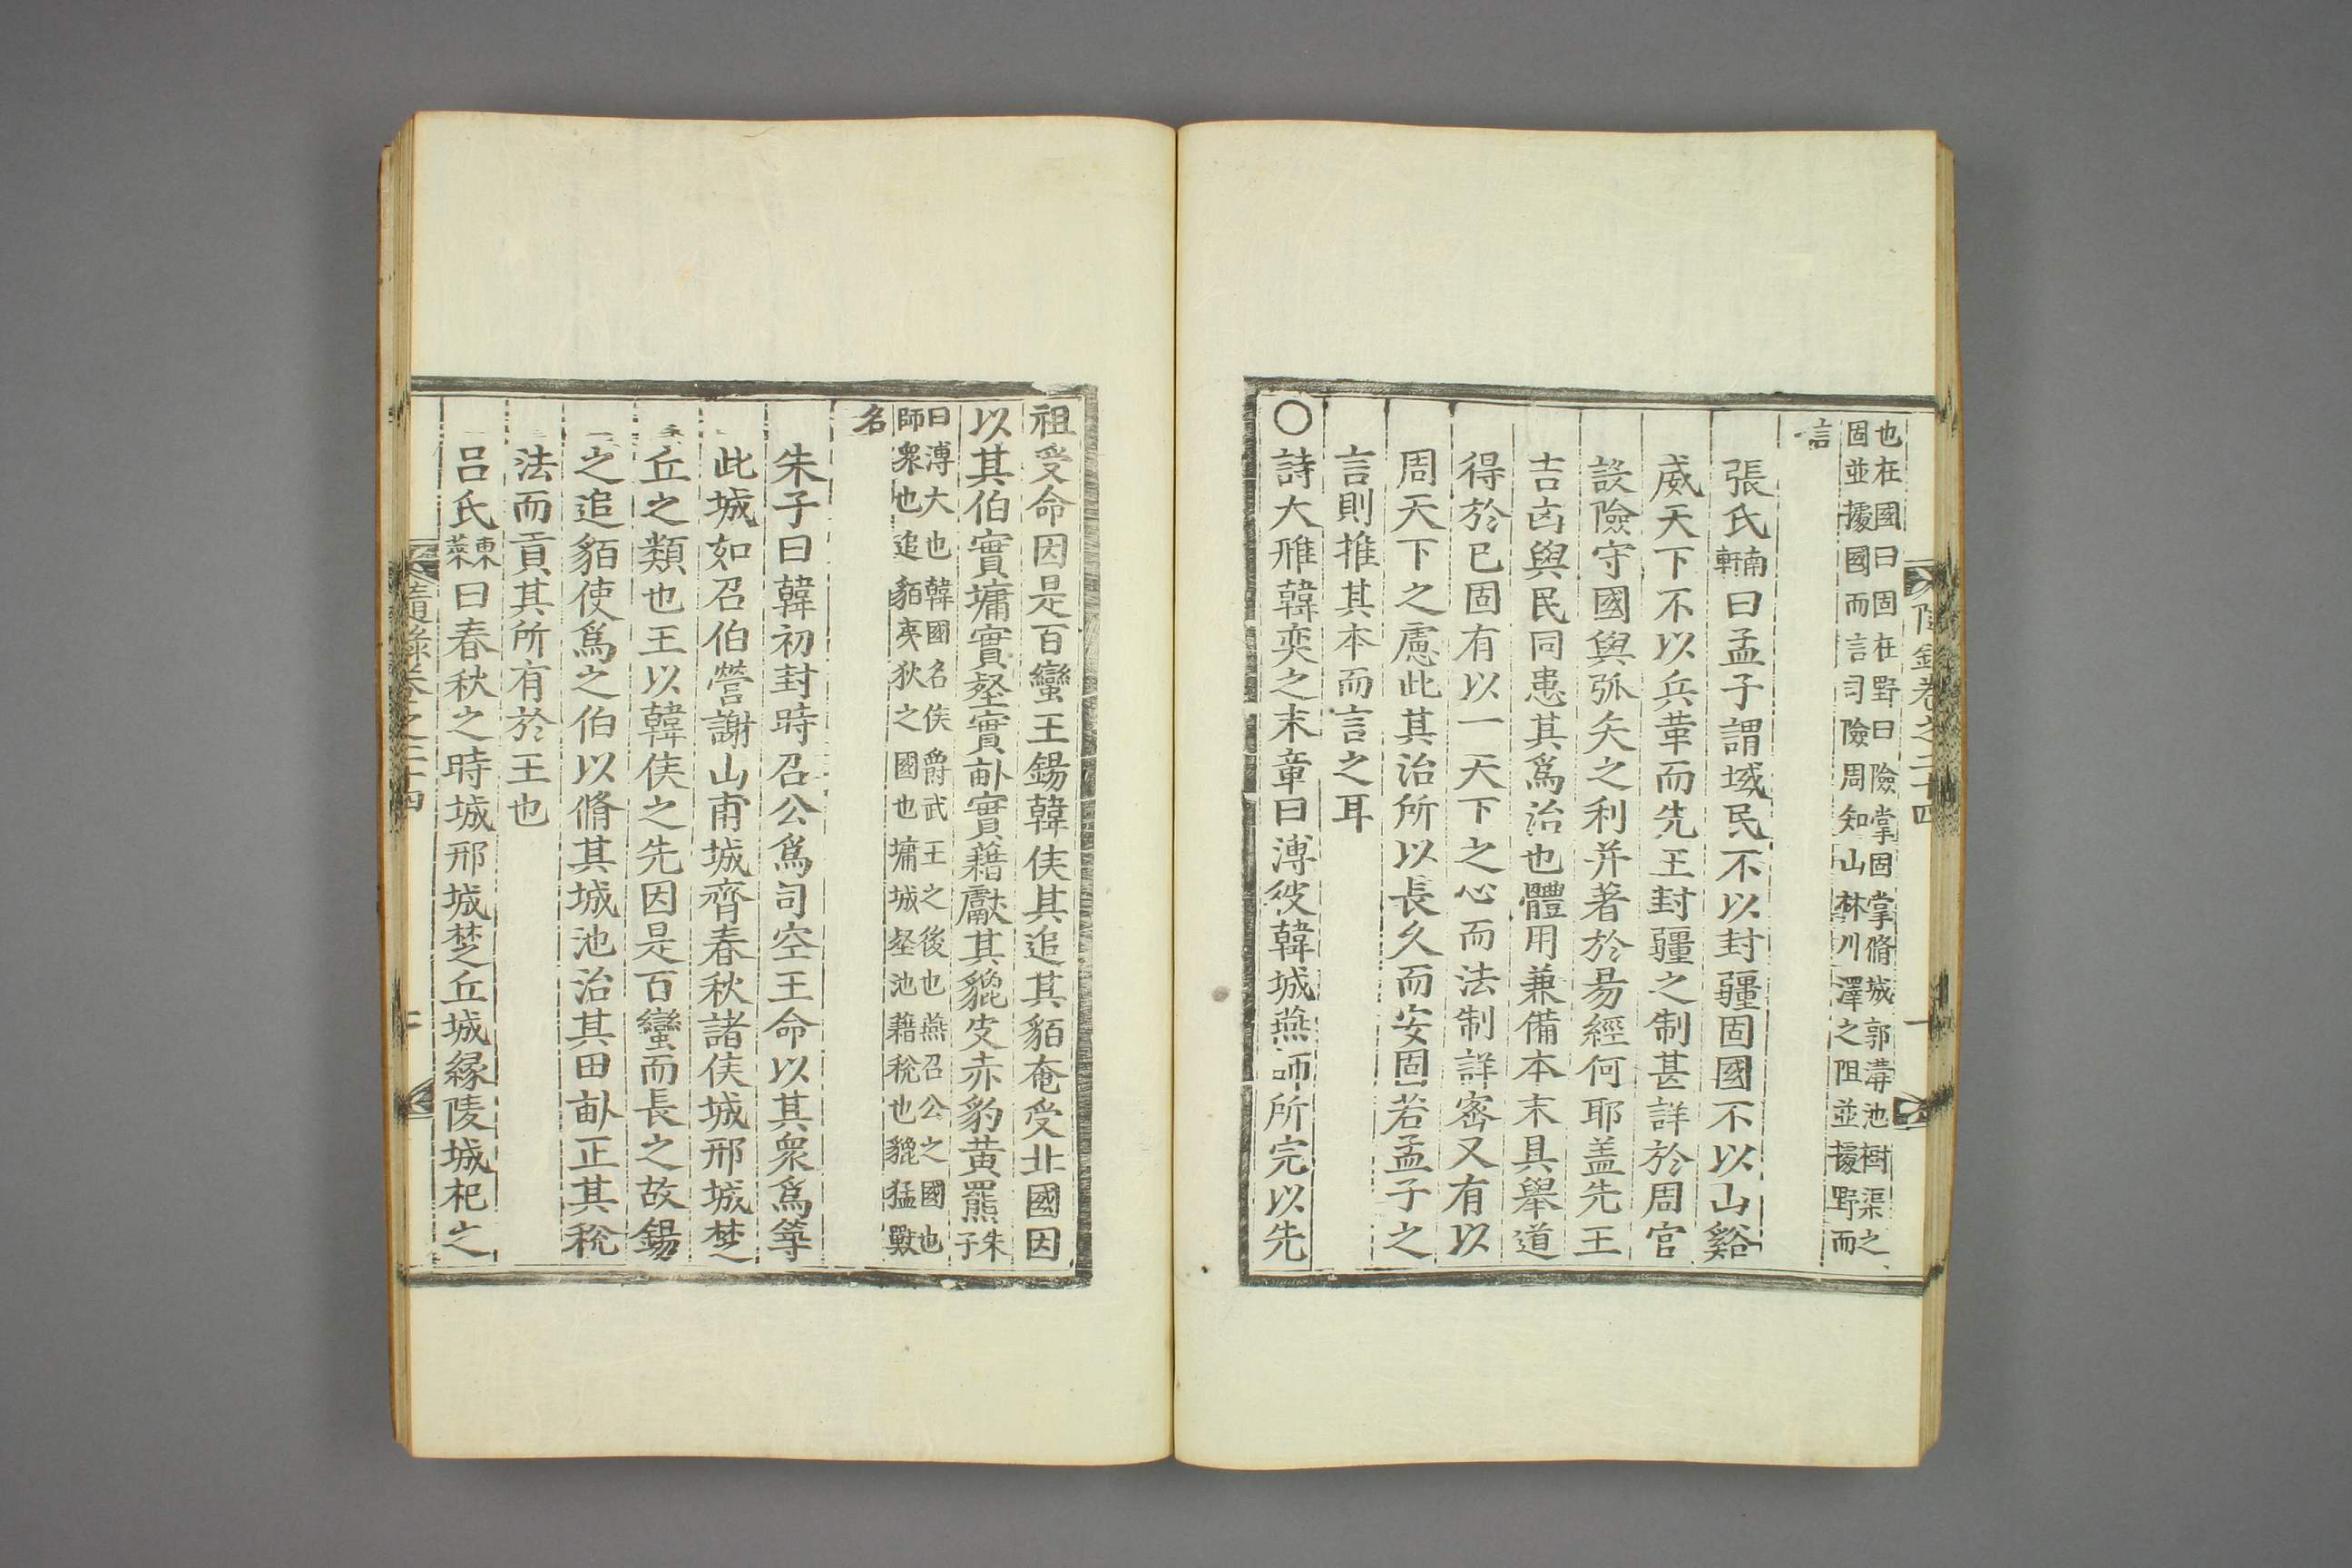 也在國曰固在野曰險掌固掌脩城郭溝池樹渠之
固並據國而言司險周知山林川澤之阻並據野而
言
張氏南軒曰孟子謂域民不以封疆固國不以山谿
威天下不以兵革而先王封疆之制甚詳於周官
設險守國與弧矢之利并著於易經何耶盖先王
吉凶與民同患其爲治也體用兼備本末具舉道
得於已固有以一天下之心而法制詳密又有以
周天下之慮此其治所以長久而安固若孟子之
言則推其本而言之耳
○詩大雅韓奕之末章曰溥彼韓城燕師所完以先
祖受命因是百蠻王錫韓侯其追其貊奄受北國因
以其伯實墉實壑實畝實藉獻其貔皮赤豹黃羆朱子
曰溥大也韓國名侯爵武王之後也燕召公之國也
師衆也追貊夷狄之國也墉城壑池藉稅也貔猛獸
名
朱子曰韓初封時召公爲司空王命以其衆爲築
此城如召伯營謝山甫城齊春秋諸侯城邢城楚
丘之類也王以韓侯之先因是百蠻而長之故錫
之追貊使爲之伯以脩其城池治其田畝正其稅
法而貢其所有於王也
呂氏東萊曰春秋之時城邢城楚丘城緣陵城杞之